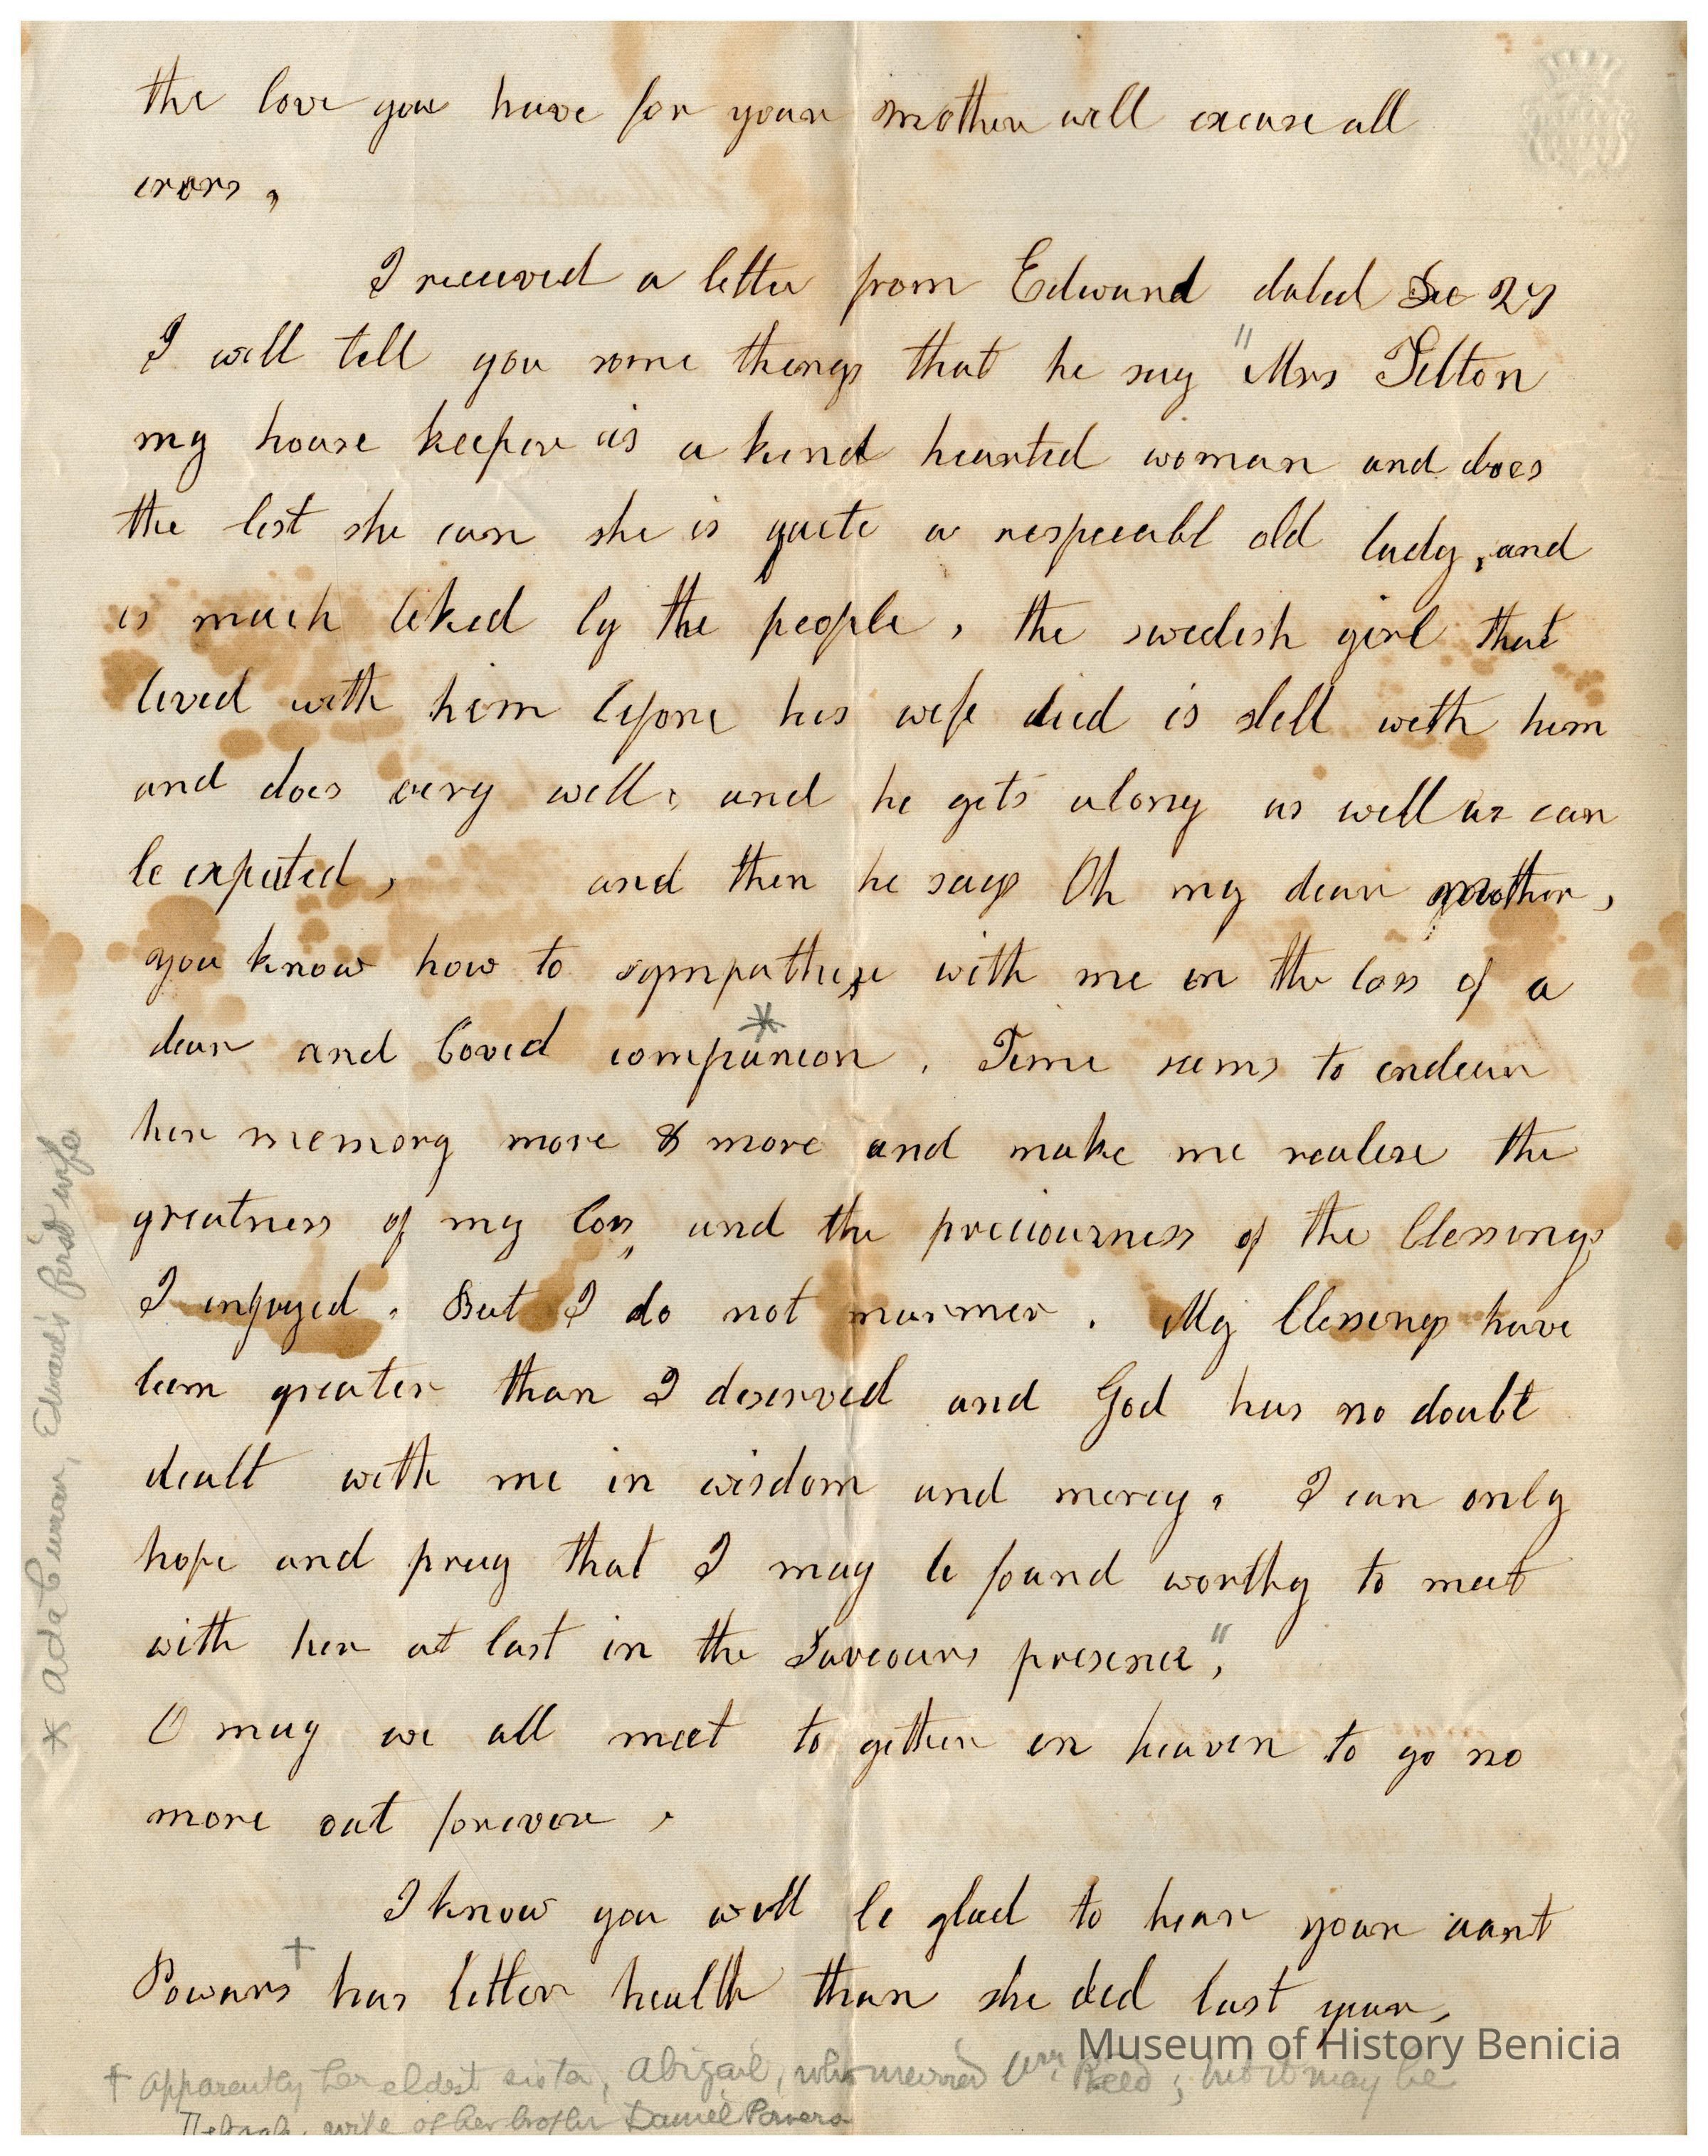 the love you have for your mother will excuse all
erors,
I received a letter from Edward dated Dec 27
I will tell you some things that he say "Mrs Tilton
my house keeper is a kind hearted woman and does
the best she can she is quite a respecabl old lady, and
is much liked by the people, the swedish girl that
lived with him before his wife died is still with him
and does very well, and he gets along as well as can
be expected, and then he says Oh my dear mother,
you know how to sympathize with me in the loss of a
dear and loved companion*. Time seems to endear
her memory more & more and make me realise the
greatness of my loss, and the preciousness of the blessings
I injoyed. But I do not murmer. My blessings have
been greater than I deserved and God has no doubt
dealt with me in wisdom and mercy, I can only
hope and pray that I may be found worthy to meet
with her at last in the Saviours presence",
O may we all meet to gether in heaven to go no
more out forever,
I know you will be glad to hear your aunt
Powars† has better health than she did last year,
† apparently her eldest sister, Abigail, who married Wm Reed; but it may be
wife of her brother Daniel Powers
* Ada Edward's first wife
Museum of History Benicia